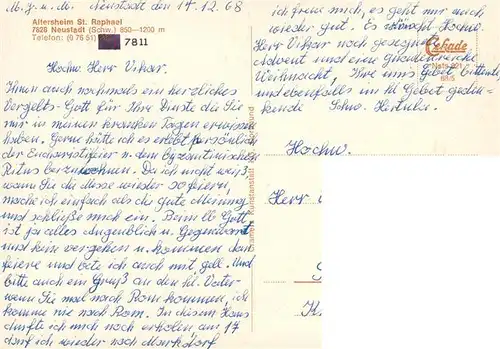 M.g.u.M. Neustadt den 17.12.68
Altersheim St. Raphael
7828 Neustadt (Schw.) 850–1200 m
Telefon: (0 76 51) 7811
Hochw. Herr Vikar.
Ihnen auch nochmals ein herzliches
Vergelts-Gott für Ihre Dienste die Sie
mir in meinen kranken Tagen erwiesen
haben. Gerne hätte ich es erlebt persönlich
der Eucharistifeier n. dem Byzantinischen
Ritus beizuwohnen. Da ich nicht weiß,
wann Sie diese wieder so feiern,
mache ich einfach als die gute Meinung
und schließe mich ein. Beim lb Gott
ist ja alles Augenblick u. Gegenwart
und kein vergehen u. kommen dan
feiere und bete ich auch mit gell. Und
bitte auch ein Gruß an den hl. Vater
wenn Sie mal nach Rom kommen, ich
komme nie nach Rom. In diesem Haus
durfte ich mich noch erholen am 17
darf ich wieder nach Markdorf
ich freue mich, es geht mir auch
wieder gut. Es wünscht Hochw.
Herr Vikar noch gesegnet
Advent und eine gnadenreiche
Weihnacht, Ihre ums Gebet bittende
und ebenfalls im hl Gebet geden-
kende Schw.
Cekade
Hochw.
Herr V